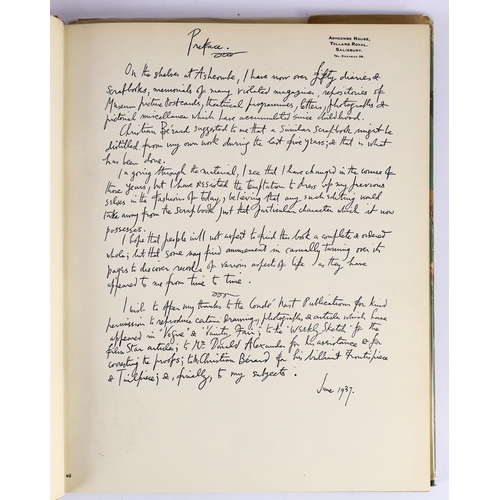 Preface.
ASHCOMBE HOUSE,
TOLLARD ROYAL,
SALISBURY.
On the shelves at Ashcombe, I have now over fifty diaries &
Scrapbooks, memorials of many violated magazines, repositories of
Museum picture postcards, theatrical programmes, letters, photographs &
pictorial miscellanea which have accumulated since childhood.
Christian Bérard suggested to me that a similar scrapbook might be
distilled from my own work during the last five years; & that is what
has been done.
In going through the material, I see that I have changed in the course of
those years, but I have resisted the temptation to dress up my previous
selves in the fashions of today, believing that any such editing would
take away from the scrapbook just that particular character which it now
possesses.
I hope that people will not expect to find this book a complete & ordered
whole; but that some may find amusement in casually turning over its
pages to discover records of various aspects of life as they have
appeared to me from time to time.
I wish to offer my thanks to the Condé Nast Publications for kind
permission to reproduce certain drawings, photographs & articles which have
appeared in 'Vogue' & 'Vanity Fair'; to the 'Weekly Sketch' for the
film Star articles; to Mr. Donald Alexander for his assistance & for
correcting the proofs; to Christian Bérard for his brilliant Frontispiece
& Tailpiece; &, finally, to my subjects.
June 1937.